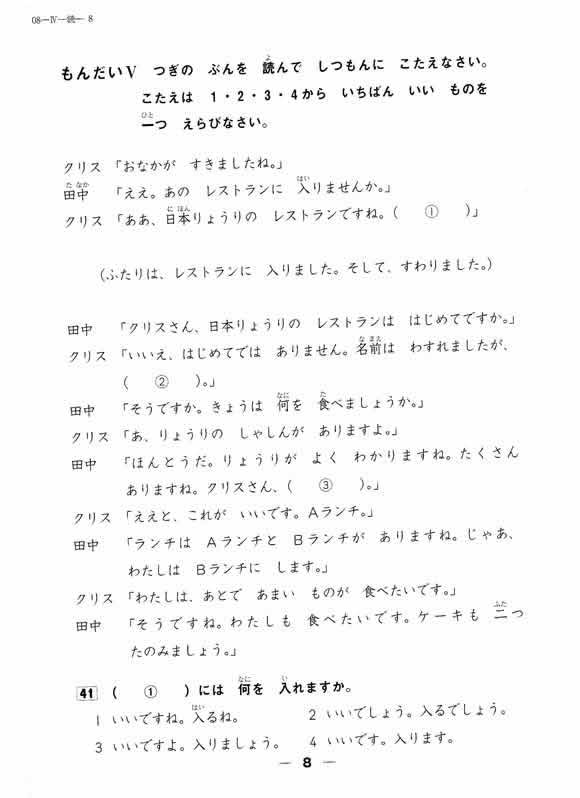 08-Ⅳ-読-8
もんだいⅤ つぎの ぶんを 読んで しつもんに こたえなさい。
こたえは 1・2・3・4から いちばん いい ものを
一つ えらびなさい。
クリス「おなかが すきましたね。」
田中 「ええ。あの レストランに 入りませんか。」
クリス「ああ、日本りょうりの レストランですね。( ① )」
(ふたりは、レストランに 入りました。そして、すわりました。)
田中 「クリスさん、日本りょうりの レストランは はじめてですか。」
クリス「いいえ、はじめてでは ありません。名前は わすれましたが、
( ② )。」
田中 「そうですか。きょうは 何を 食べましょうか。」
クリス「あ、りょうりの しゃしんが ありますよ。」
田中 「ほんとうだ。りょうりが よく わかりますね。たくさん
ありますね。クリスさん、( ③ )。」
クリス「ええと、これが いいです。Aランチ。」
田中 「ランチは Aランチと Bランチが ありますね。じゃあ、
わたしは Bランチに します。」
クリス「わたしは、あとで あまい ものが 食べたいです。」
田中 「そうですね。わたしも 食べたいです。ケーキも 二つ
たのみましょう。」
41 ( ① )には 何を 入れますか。
1 いいですね。入るね。 2 いいでしょう。入るでしょう。
3 いいですよ。入りましょう。 4 いいです。入ります。
— 8 —